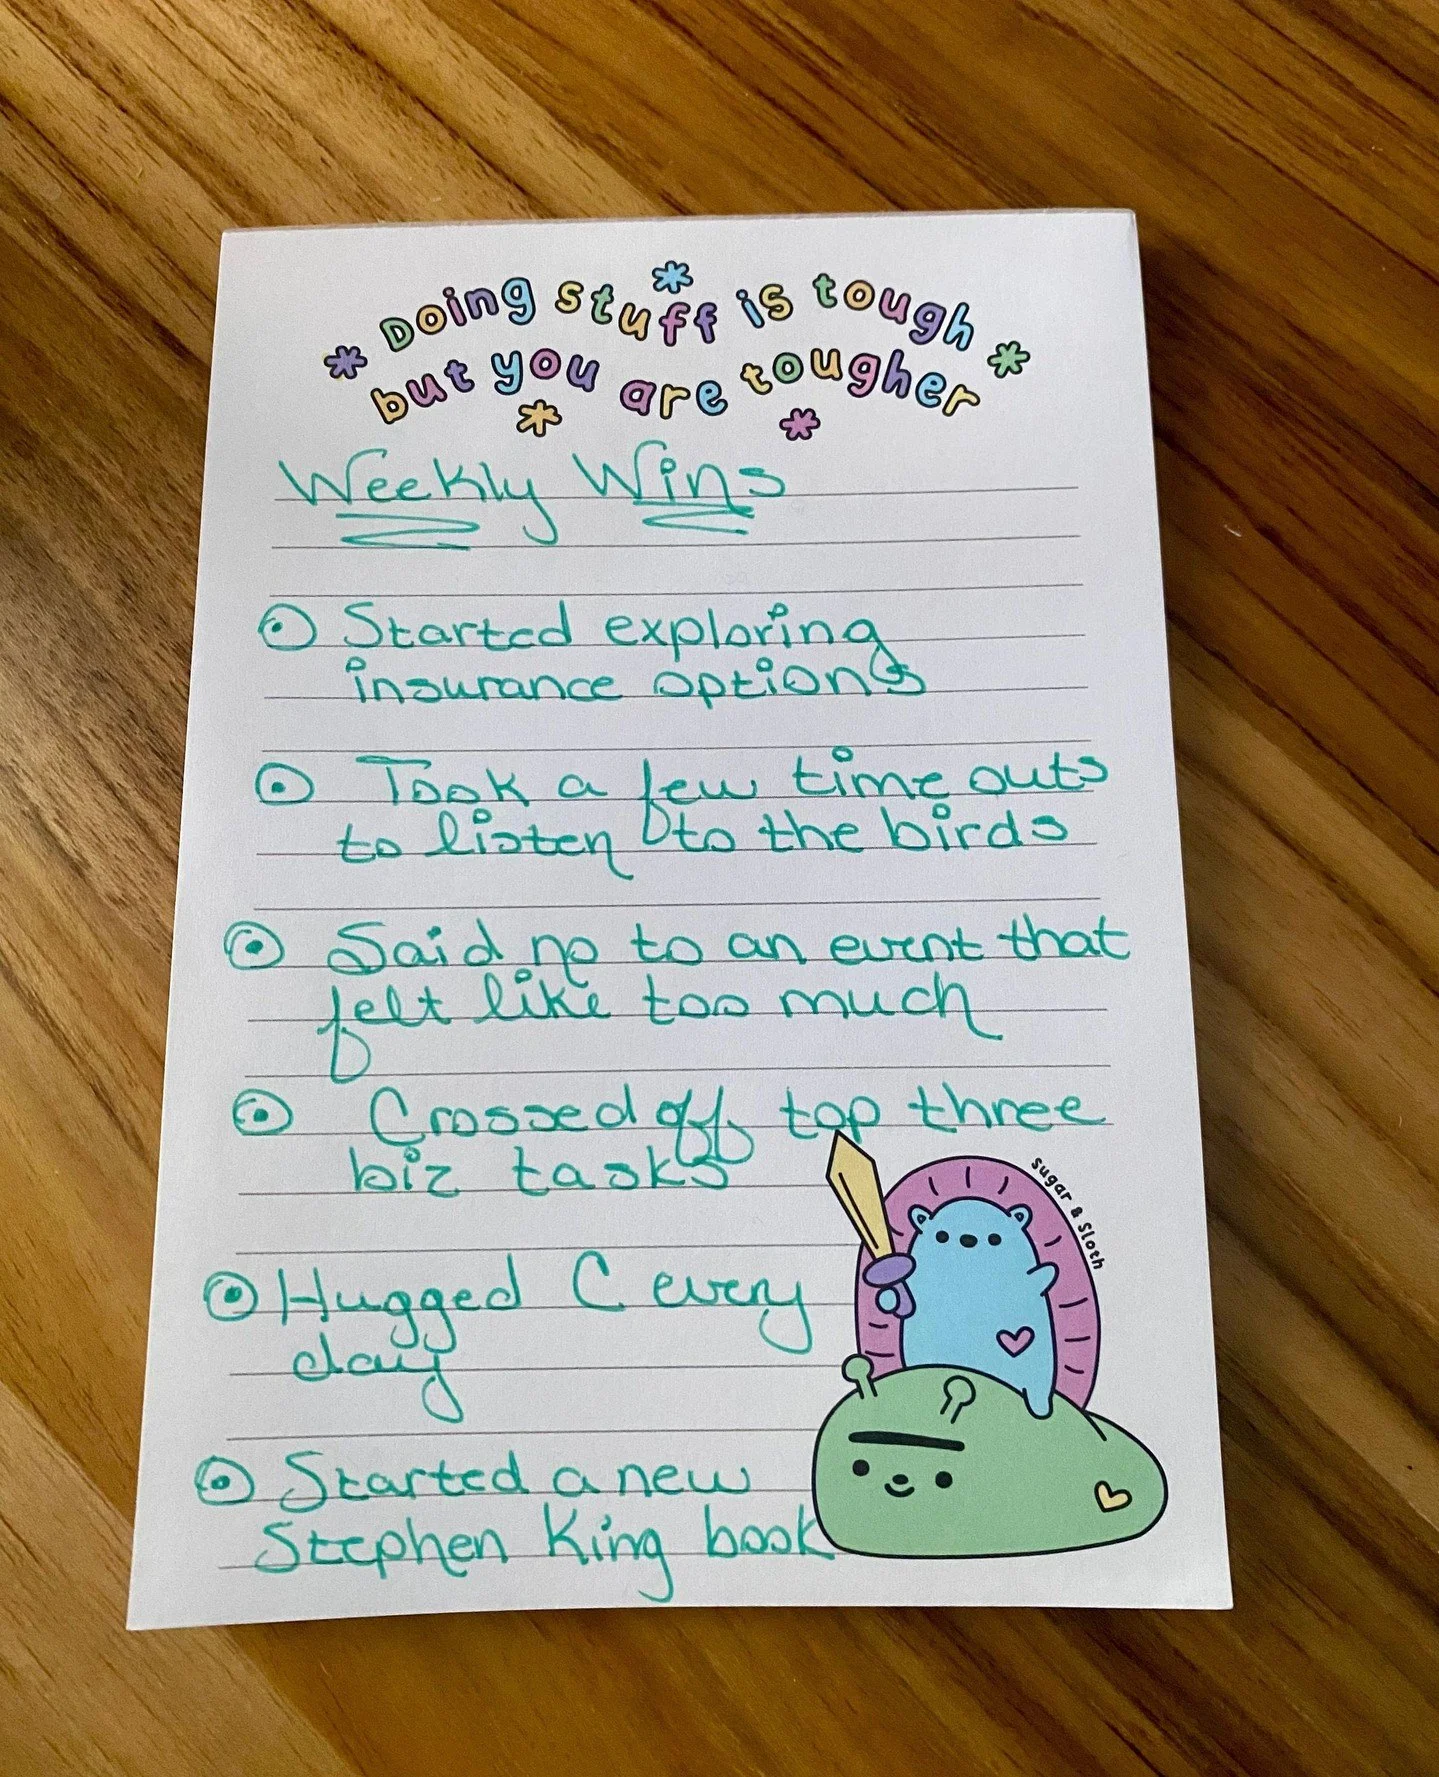 Doing stuff is tough
but you are tougher
Weekly Wins
Started exploring
insurance options
Took a few time outs
to listen to the birds
Said no to an event that
felt like too much
Crossed off top three
biz tasks
sugar & sloth
Hugged C every
day
Started a new
Stephen King book